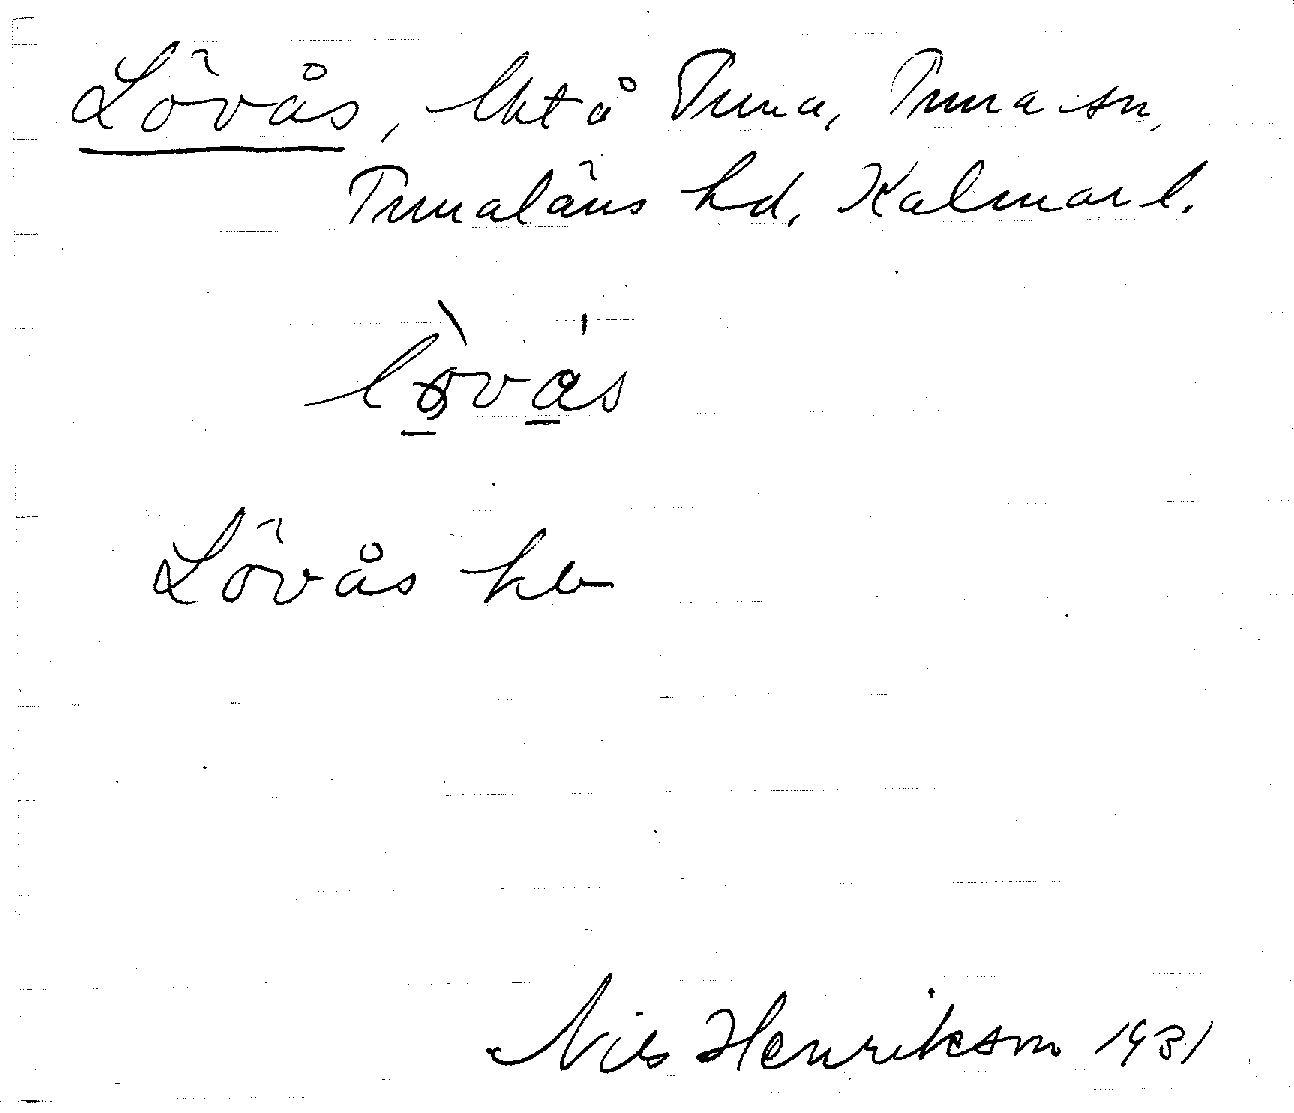 Lövås, lht å Tuna, Tuna sn,
Tunaläns hd, Kalmar l.
lòvás
Lövås kb
Nils Henrikson 1931